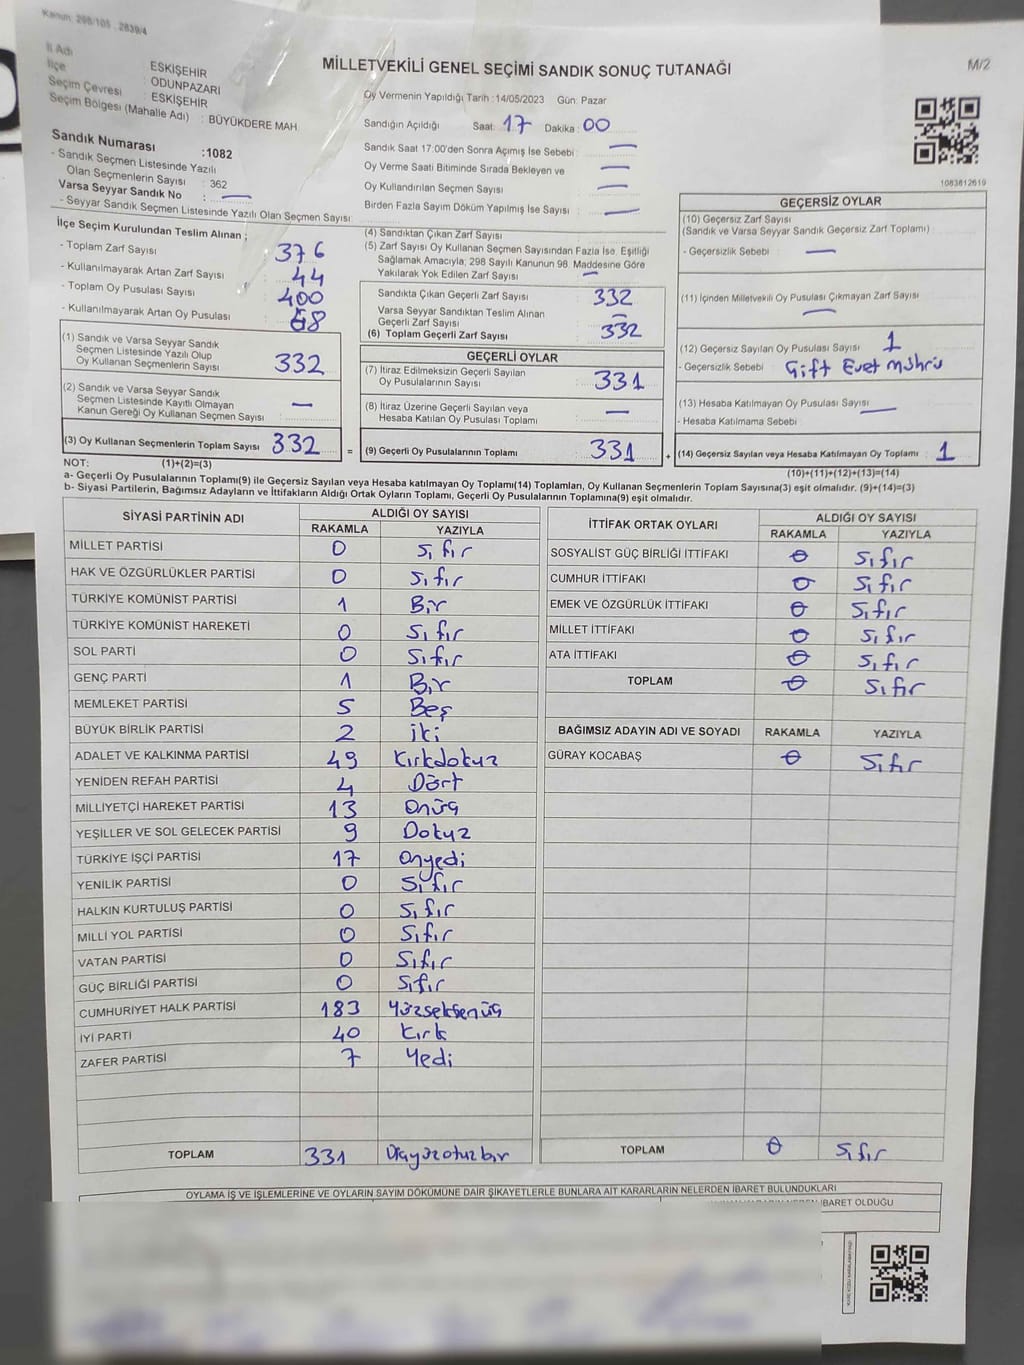 Kanun: 298/105 . 2839/4
MİLLETVEKİLİ GENEL SEÇİMİ SANDIK SONUÇ TUTANAĞI
M/2
İl Adı : ESKİŞEHİR
İlçe : ODUNPAZARI
Seçim Çevresi : ESKİŞEHİR
Seçim Bölgesi (Mahalle Adı) : BÜYÜKDERE MAH
Oy Vermenin Yapıldığı Tarih :14/05/2023 Gün: Pazar
Sandığın Açıldığı Saat: 17 Dakika : 00
Sandık Saat 17:00'den Sonra Açımış İse Sebebi : —
Oy Verme Saati Bitiminde Sırada Bekleyen ve —
Oy Kullandırılan Seçmen Sayısı : —
Birden Fazla Sayım Döküm Yapılmış İse Sayısı : —
1083812619
Sandık Numarası :1082
- Sandık Seçmen Listesinde Yazılı
Olan Seçmenlerin Sayısı : 362
Varsa Seyyar Sandık No : —
- Seyyar Sandık Seçmen Listesinde Yazılı Olan Seçmen Sayısı :
İlçe Seçim Kurulundan Teslim Alınan ;
- Toplam Zarf Sayısı : 376
- Kullanılmayarak Artan Zarf Sayısı : 44
- Toplam Oy Pusulası Sayısı : 400
- Kullanılmayarak Artan Oy Pusulası : 68
(1) Sandık ve Varsa Seyyar Sandık
Seçmen Listesinde Yazılı Olup
Oy Kullanan Seçmenlerin Sayısı : 332
(2) Sandık ve Varsa Seyyar Sandık
Seçmen Listesinde Kayıtlı Olmayan
Kanun Gereği Oy Kullanan Seçmen Sayısı : —
(3) Oy Kullanan Seçmenlerin Toplam Sayısı : 332
(4) Sandıktan Çıkan Zarf Sayısı :
(5) Zarf Sayısı Oy Kullanan Seçmen Sayısından Fazla İse, Eşitliği
Sağlamak Amacıyla; 298 Sayılı Kanunun 98. Maddesine Göre
Yakılarak Yok Edilen Zarf Sayısı : —
Sandıkta Çıkan Geçerli Zarf Sayısı : 332
Varsa Seyyar Sandıktan Teslim Alınan
Geçerli Zarf Sayısı : —
(6) Toplam Geçerli Zarf Sayısı : 332
GEÇERLİ OYLAR
(7) İtiraz Edilmeksizin Geçerli Sayılan
Oy Pusulalarının Sayısı : 331
(8) İtiraz Üzerine Geçerli Sayılan veya
Hesaba Katılan Oy Pusulası Toplamı : —
= (9) Geçerli Oy Pusulalarının Toplamı : 331
GEÇERSİZ OYLAR
(10) Geçersiz Zarf Sayısı
(Sandık ve Varsa Seyyar Sandık Geçersiz Zarf Toplamı) :
- Geçersizlik Sebebi : —
(11) İçinden Milletvekili Oy Pusulası Çıkmayan Zarf Sayısı
—
(12) Geçersiz Sayılan Oy Pusulası Sayısı : 1
- Geçersizlik Sebebi : Çift Evet Mührü
(13) Hesaba Katılmayan Oy Pusulası Sayısı : —
- Hesaba Katılmama Sebebi :
+ (14) Geçersiz Sayılan veya Hesaba Katılmayan Oy Toplamı : 1
NOT: (1)+(2)=(3)
(10)+(11)+(12)+(13)=(14)
a- Geçerli Oy Pusulalarının Toplamı(9) ile Geçersiz Sayılan veya Hesaba katılmayan Oy Toplamı(14) Toplamları, Oy Kullanan Seçmenlerin Toplam Sayısına(3) eşit olmalıdır. (9)+(14)=(3)
b- Siyasi Partilerin, Bağımsız Adayların ve İttifakların Aldığı Ortak Oyların Toplamı, Geçerli Oy Pusulalarının Toplamına(9) eşit olmalıdır.
SİYASİ PARTİNİN ADI ALDIĞI OY SAYISI
RAKAMLA YAZIYLA
MİLLET PARTİSİ 0 Sıfır
HAK VE ÖZGÜRLÜKLER PARTİSİ 0 Sıfır
TÜRKİYE KOMÜNİST PARTİSİ 1 Bir
TÜRKİYE KOMÜNİST HAREKETİ 0 Sıfır
SOL PARTİ 0 Sıfır
GENÇ PARTİ 1 Bir
MEMLEKET PARTİSİ 5 Beş
BÜYÜK BİRLİK PARTİSİ 2 İki
ADALET VE KALKINMA PARTİSİ 49 Kırkdokuz
YENİDEN REFAH PARTİSİ 4 Dört
MİLLİYETÇİ HAREKET PARTİSİ 13 Onüç
YEŞİLLER VE SOL GELECEK PARTİSİ 9 Dokuz
TÜRKİYE İŞÇİ PARTİSİ 17 Onyedi
YENİLİK PARTİSİ 0 Sıfır
HALKIN KURTULUŞ PARTİSİ 0 Sıfır
MİLLİ YOL PARTİSİ 0 Sıfır
VATAN PARTİSİ 0 Sıfır
GÜÇ BİRLİĞİ PARTİSİ 0 Sıfır
CUMHURİYET HALK PARTİSİ 183 Yüzseksenüç
İYİ PARTİ 40 Kırk
ZAFER PARTİSİ 7 Yedi
TOPLAM 331 Üçyüzotuzbir
İTTİFAK ORTAK OYLARI ALDIĞI OY SAYISI
RAKAMLA YAZIYLA
SOSYALİST GÜÇ BİRLİĞİ İTTİFAKI 0 Sıfır
CUMHUR İTTİFAKI 0 Sıfır
EMEK VE ÖZGÜRLÜK İTTİFAKI 0 Sıfır
MİLLET İTTİFAKI 0 Sıfır
ATA İTTİFAKI 0 Sıfır
TOPLAM 0 Sıfır
BAĞIMSIZ ADAYIN ADI VE SOYADI RAKAMLA YAZIYLA
GÜRAY KOCABAŞ 0 Sıfır
TOPLAM 0 Sıfır
OYLAMA İŞ VE İŞLEMLERİNE VE OYLARIN SAYIM DÖKÜMÜNE DAİR ŞİKAYETLERLE BUNLARA AİT KARARLARIN NELERDEN İBARET BULUNDUKLARI
İBARET OLDUĞU